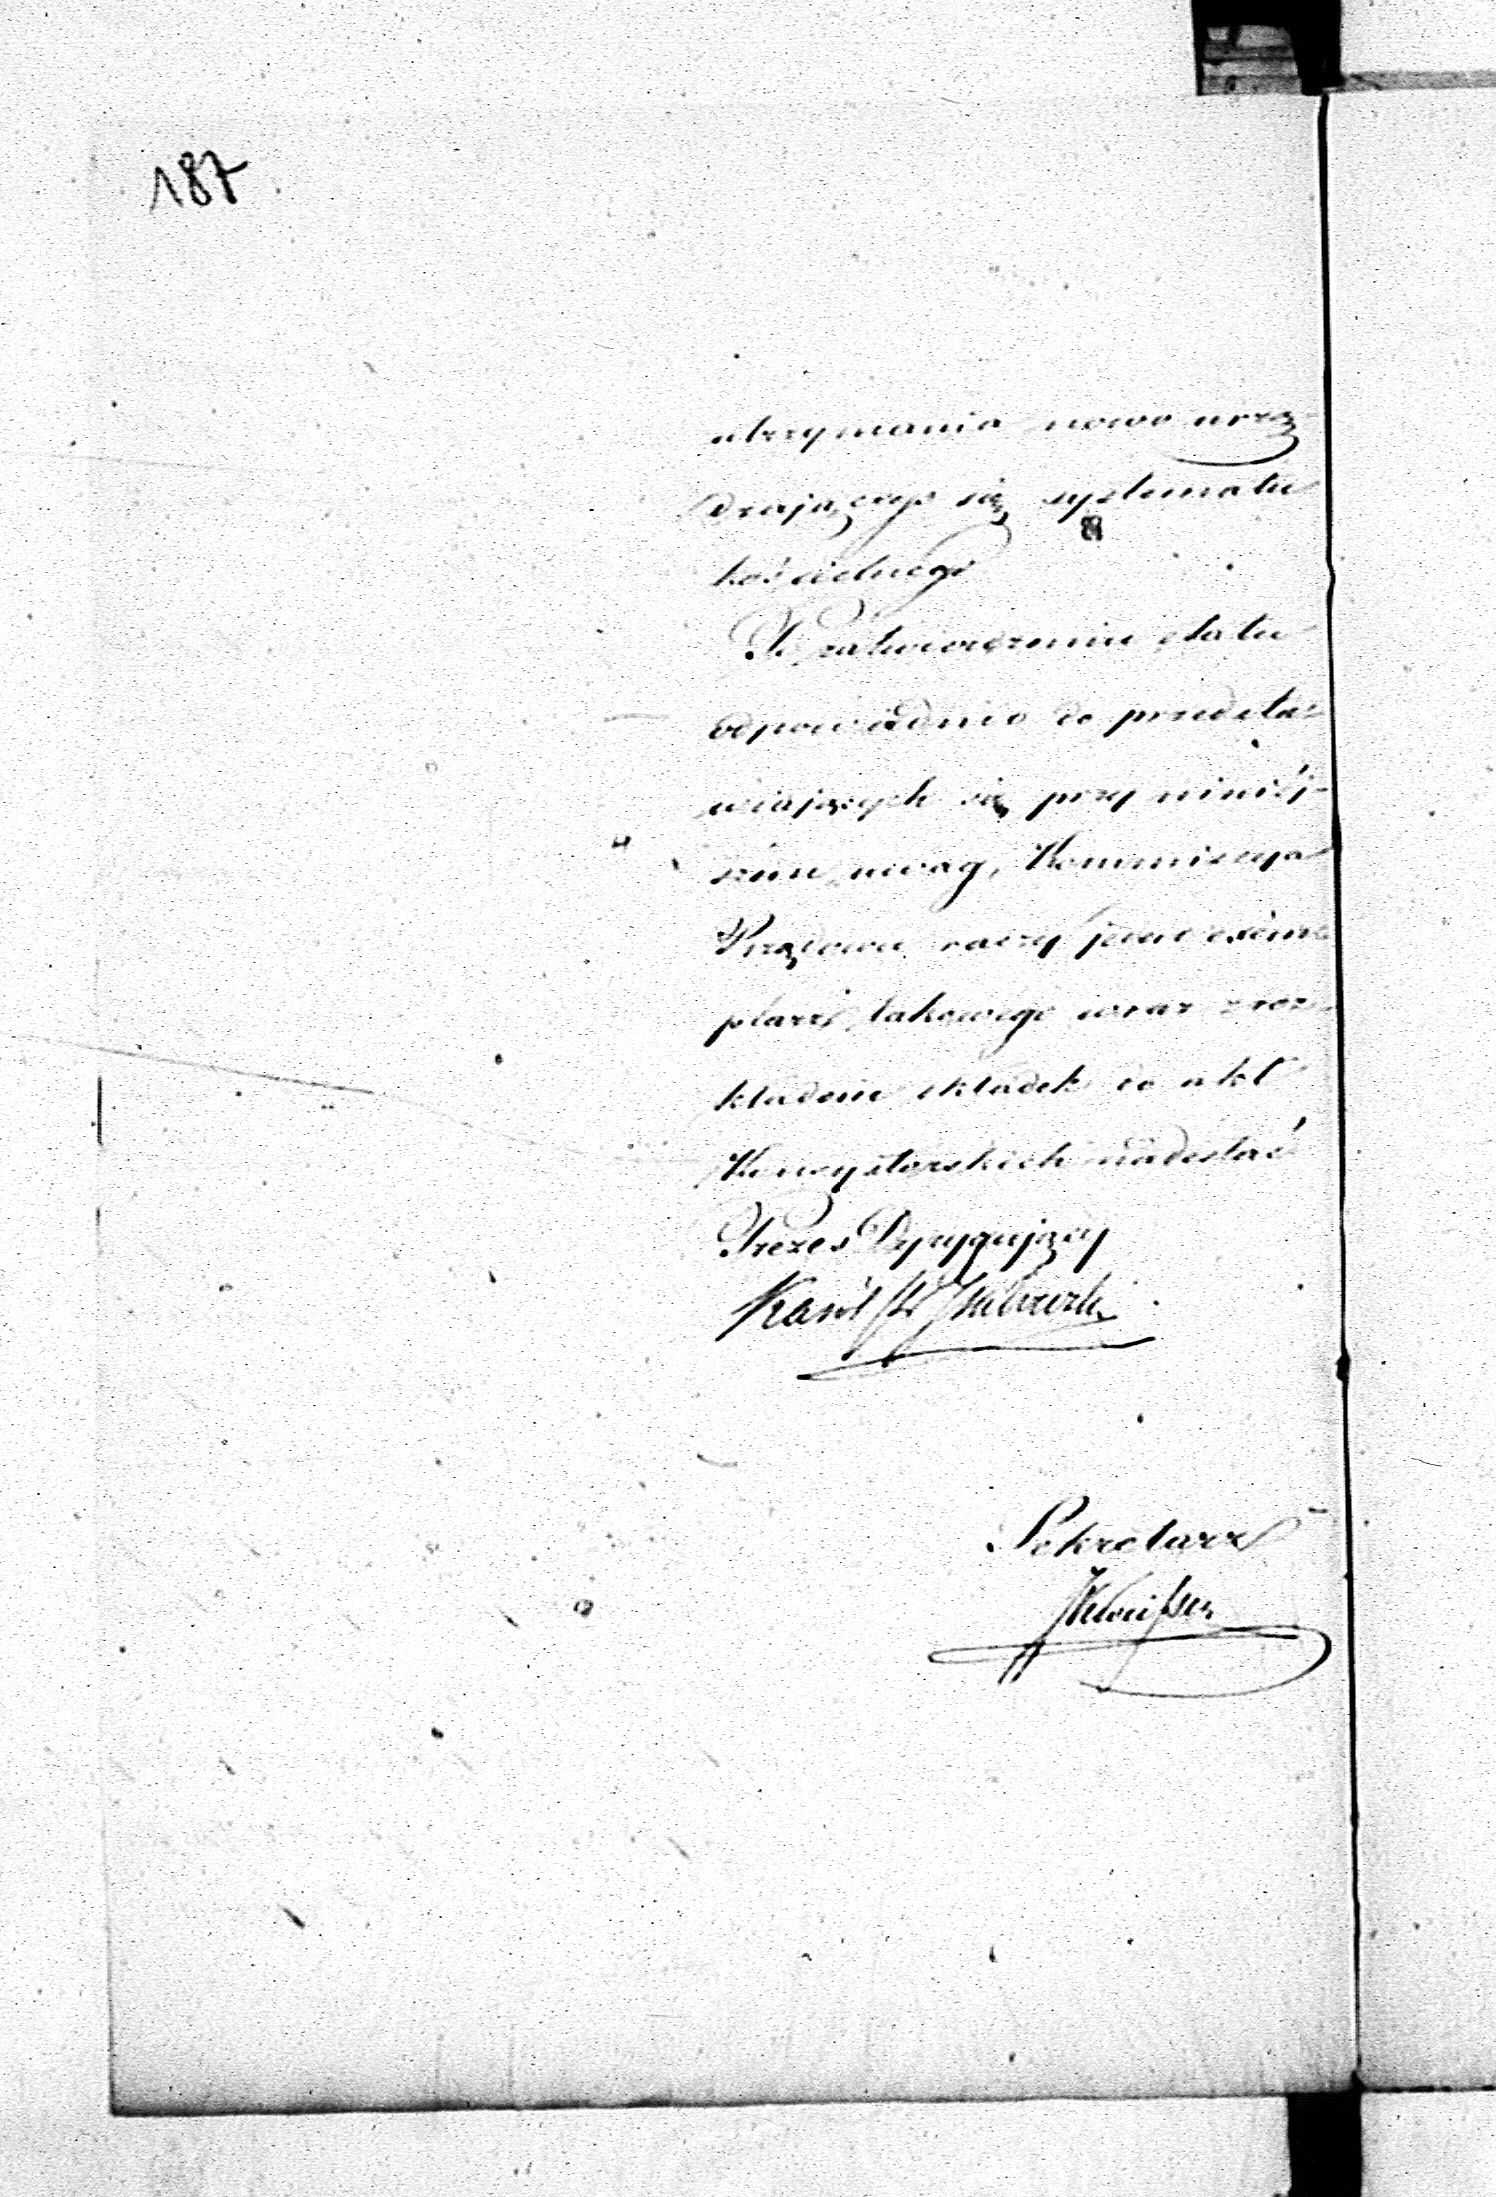 187
utrzymania nowo urzą-
dzającego się systematu
kościelnego
Po zatwierdzeniu etatu
odpowiednio do przedsta-
wiających się przy niniéj-
szém uwag, Kommissya
Rządowa raczy jeden exem-
plarz takowego wraz z roz-
kładem składek do akt
Konsystorskich nadesłać
Prezes Dyrygujący
Karol
Sekretarz